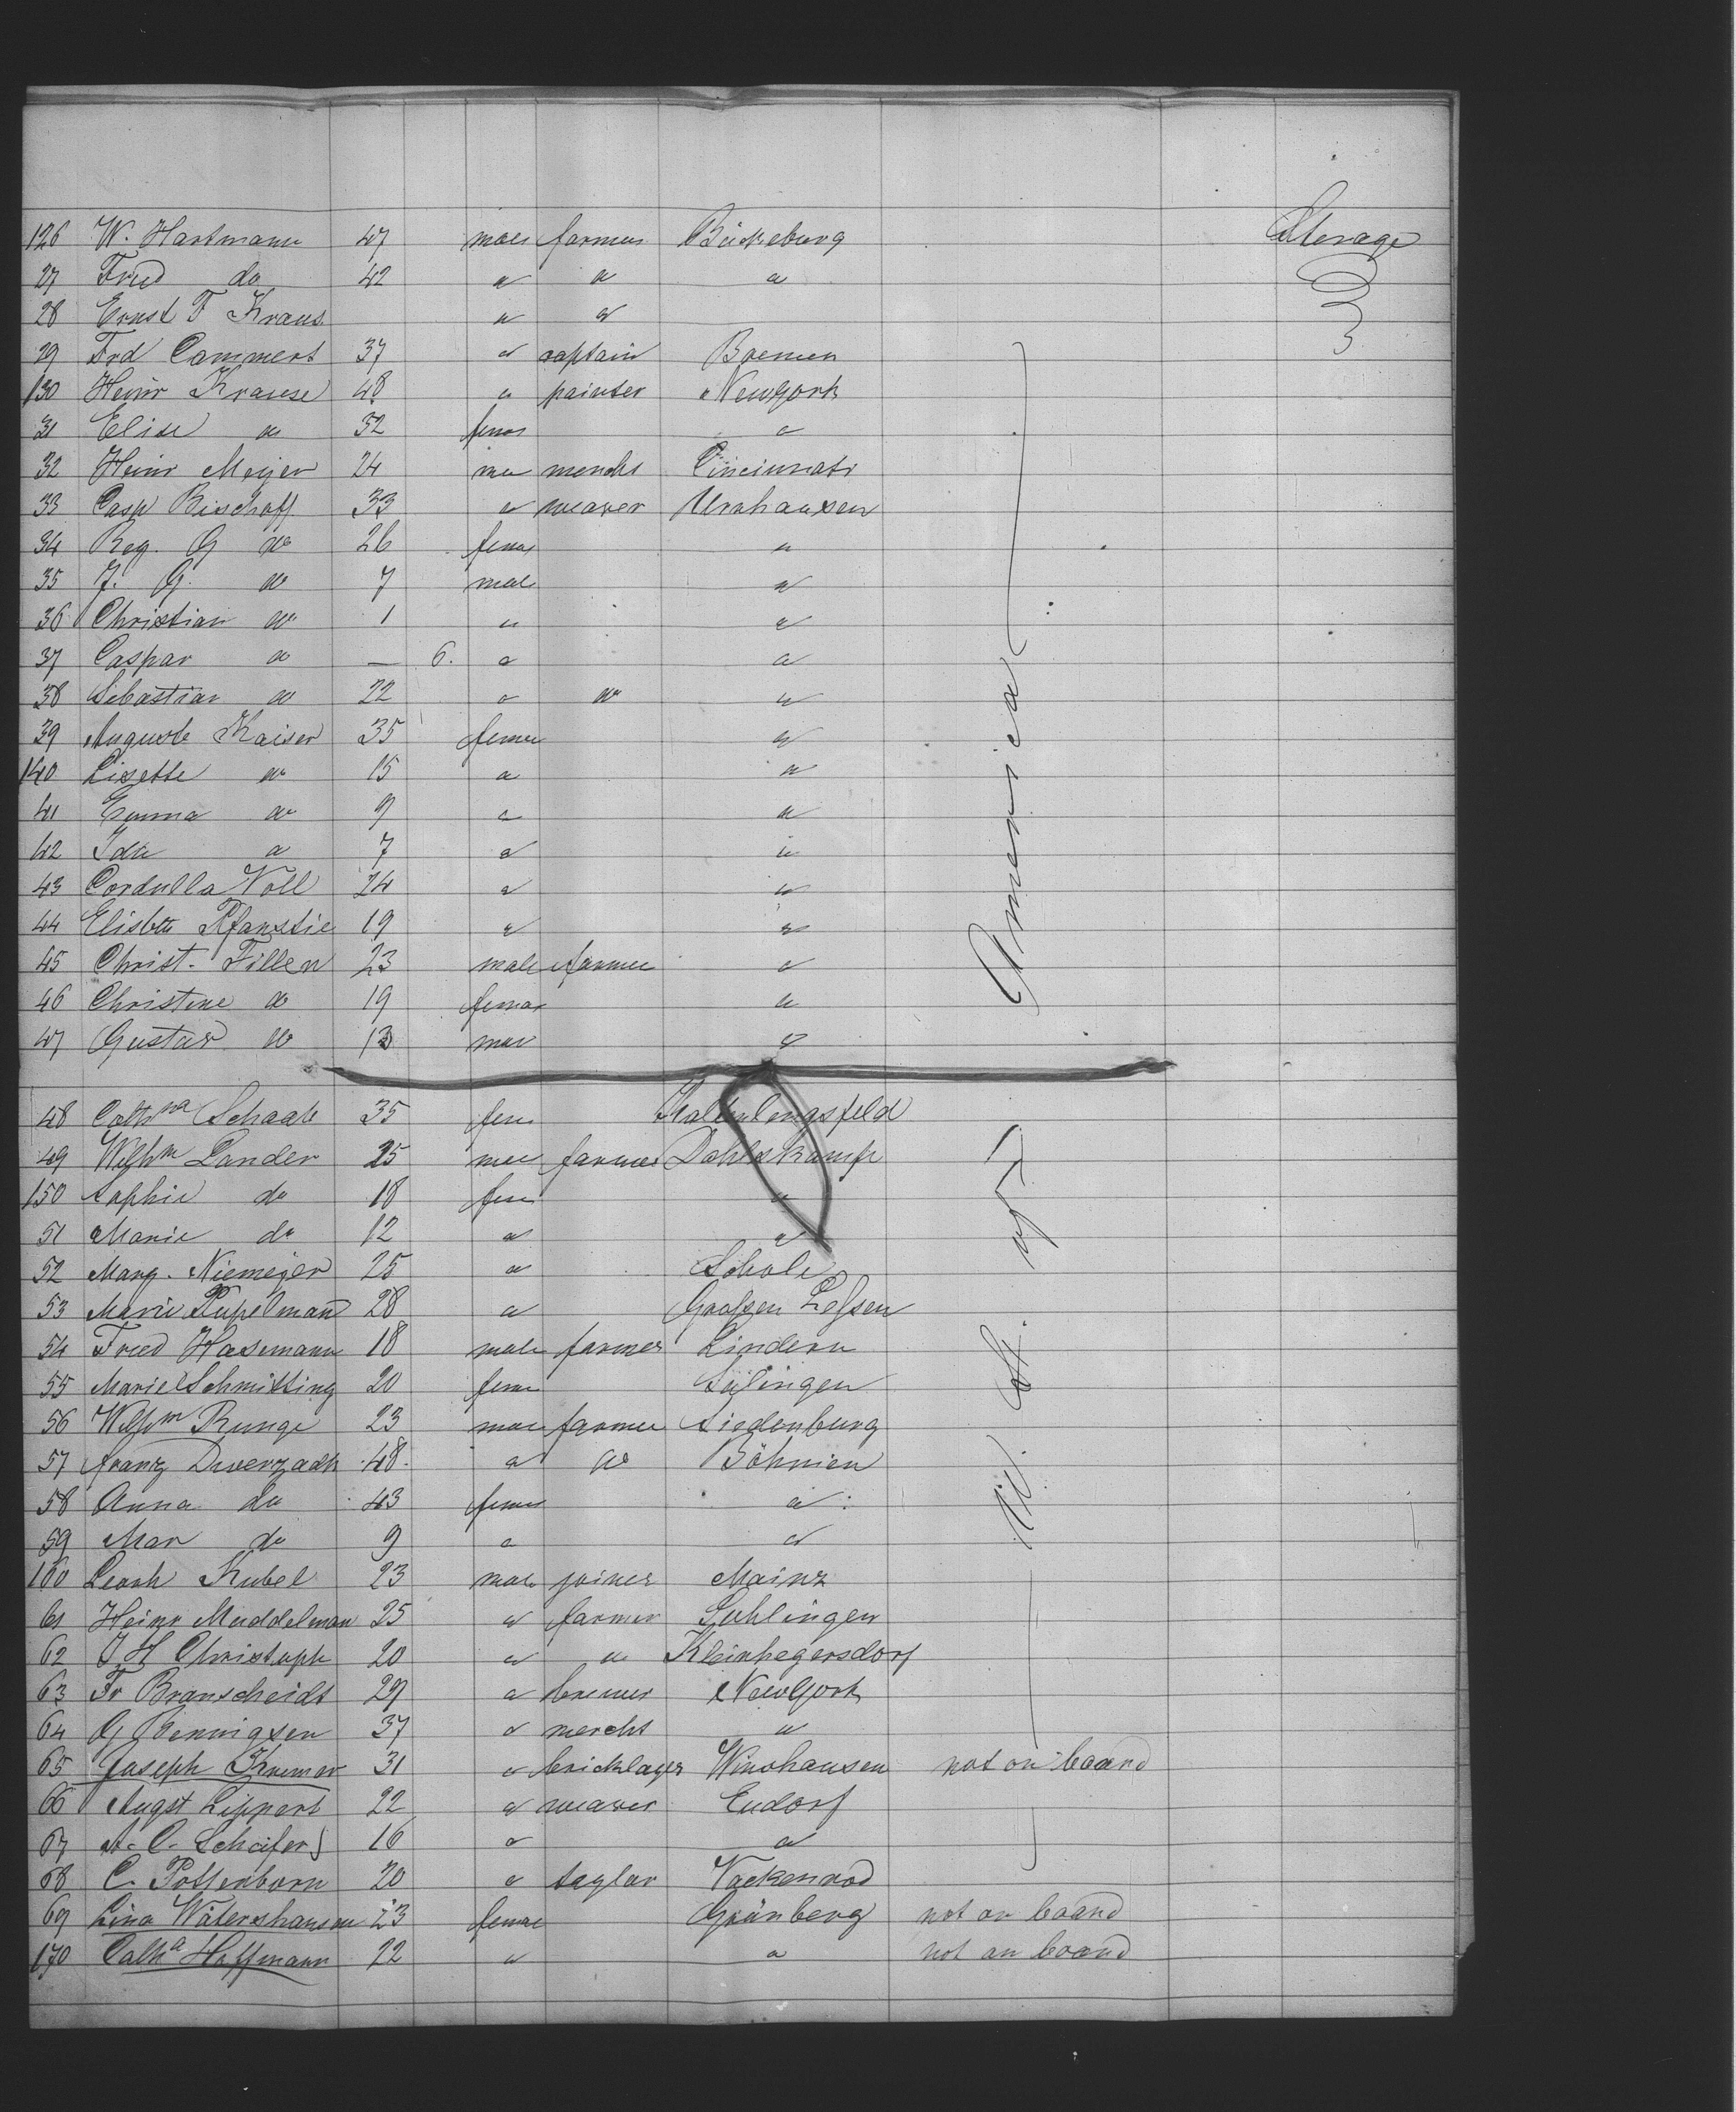 Sterage
126 W. Hartmann 47 male farmer Bückeburg
27 Fried do 42 " " "
28 Ernst F Kraus " "
29 Frd Cammert 37 " captain Bremen
130 Heinr Krause 48 " painter Newyork
31 Elise " 32 female "
32 Heinr Meijer 24 ma mercht Cincinnati
33 Casp Bischoff 33 " weaver Urnhausen
34 Reg. G do 26 female "
35 J. G. do 7 male "
36 Christian do 1 " "
37 Caspar do — 6. " "
38 Sebastian do 22 " do "
39 Auguste Kaiser 35 female "
140 Lisette do 15 " "
41 Emma do 9 " "
42 Ida " 7 " "
43 Cordulla Voll 24 " "
44 Elisbth Pfanstie 19 " "
45 Christ. Fillen 23 male farmer "
46 Christine do 19 female "
47 Gustav do 13 male "
48 Cathna Schaab 35 fem Kaltenlengsfeld
49 Wilhm Lander 25 male farmer Dahlskamp
150 Sophie do 18 fem "
51 Marie do 12 " "
52 Marg. Niemejer 25 " Schale
53 Marie Pupelmann 28 " Grossen Lessen
54 Fried Hasemann 18 male farmer Lindern
55 Marie Schmitting 20 fema Sulingen
56 Wilhm Runge 23 male farmer Siedenburg
57 Franz Dwerzack 48 " do Böhmen
58 Anna do 43 female "
59 Mar do 9 " "
160 Leonh Kubel 23 male joiner Mainz
61 Heinr Muddelman 25 " farmer Suhlingen
62 J H Christoph 20 " " Kleinhegersdorf
63 Fr Branscheidt 29 " brewer Newyork
64 G Bennigsen 37 " mercht "
65 Joseph Kremer 31 " bricklayer Winshausen not on board
66 Augst Lippert 22 " weaver Eudorf
67 A. C. Schäfer 16 " "
68 C. Pottenborn 20 " taylor Vockenrod
69 Lina Watershausen 23 female Grünberg not on board
170 Catha Hoffmann 22 " " not on board
U. St. of
America